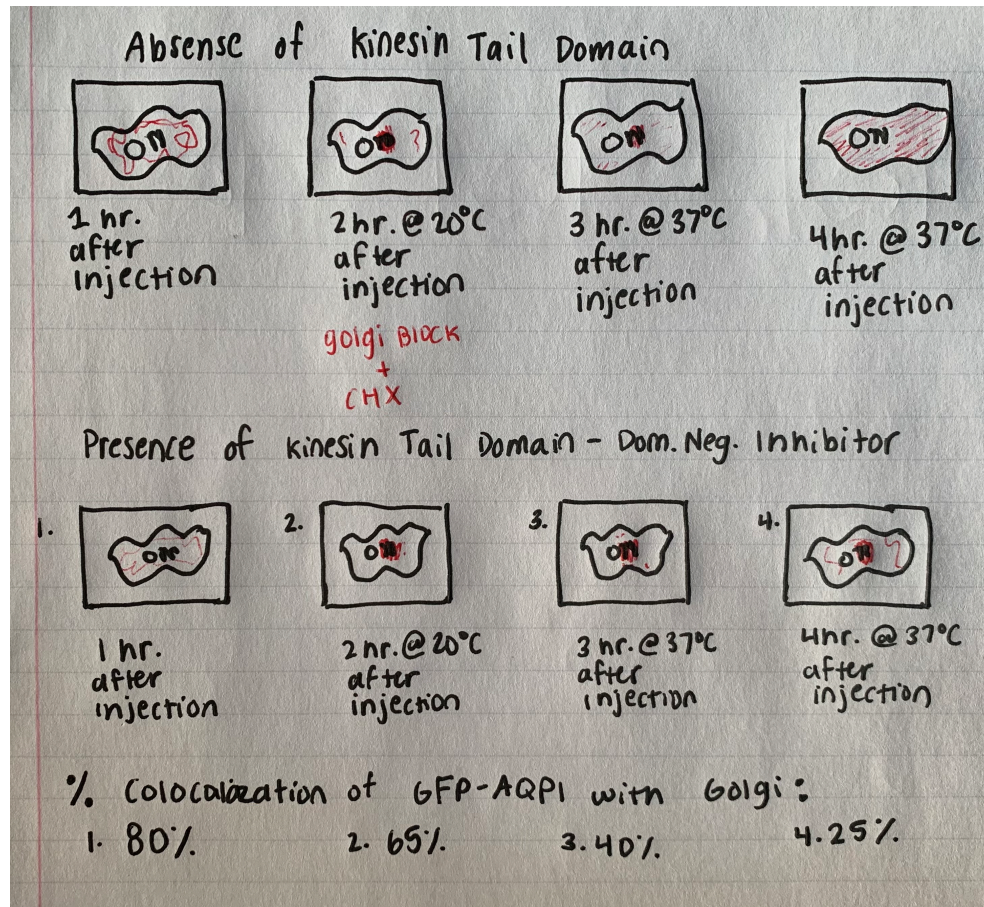 Absense of Kinesin Tail Domain
ON ON ON ON
1 hr.
after
injection
2hr. @ 20°C
after
injection
3 hr. @ 37°C
after
injection
4hr. @ 37°C
after
injection
golgi BLOCK
+
CHX
Presence of Kinesin Tail Domain - Dom. Neg. Inhibitor
1. 2. 3. 4.
ON ON ON ON
1 hr.
after
injection
2hr. @ 20°C
after
injection
3 hr. @ 37°C
after
injection
4hr. @ 37°C
after
injection
% Colocalization of GFP-AQP1 with Golgi:
1. 80% 2. 65% 3. 40% 4. 25%